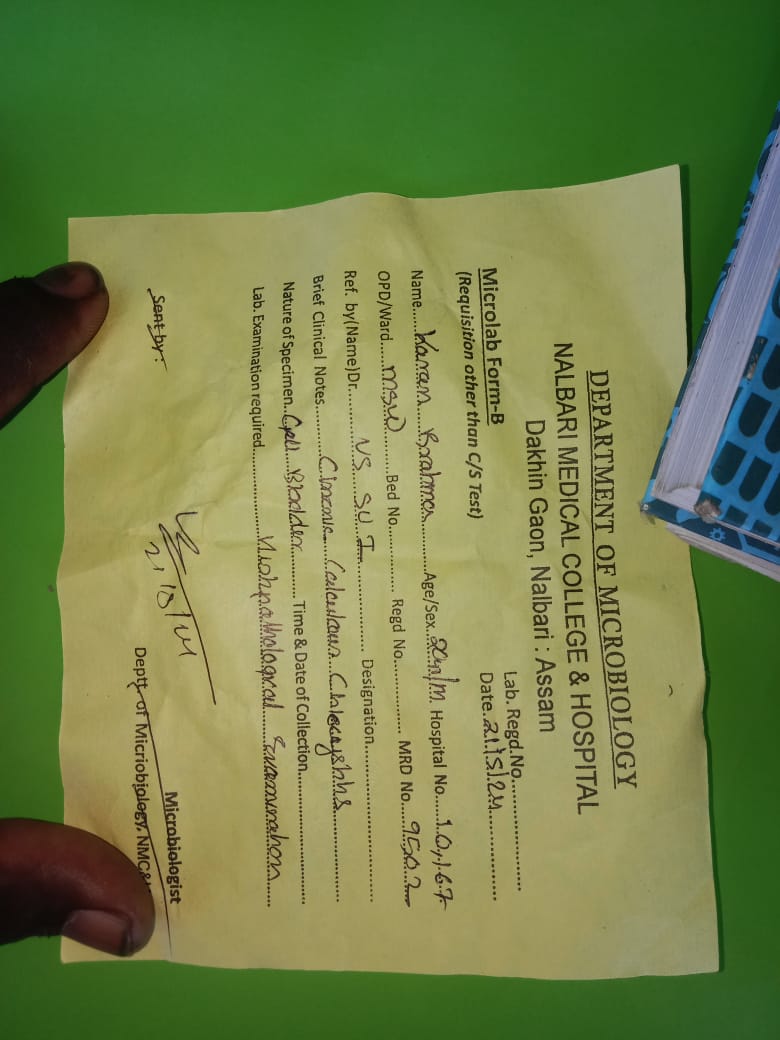 DEPARTMENT OF MICROBIOLOGY
NALBARI MEDICAL COLLEGE & HOSPITAL
Dakhin Gaon, Nalbari : Assam
Lab. Regd.No..................
Microlab Form-B
Date..21/5/24..................
(Requisition other than C/S Test)
Name......Karan Brahma............Age/Sex../M. Hospital No.....10,167
OPD/Ward......MSW..........Bed No............... Regd No.................. MRD No.....9503
Ref. by(Name)Dr............US SU I.................. Designation................................
Brief Clinical Notes............Chronic Calculous
Nature of Specimen..Gall Bladder............Time & Date of Collection................................
Lab. Examination required.....................Histopathological Examination
Sent by:
Microbiologist
Deptt. of Micriobiology, NMC&